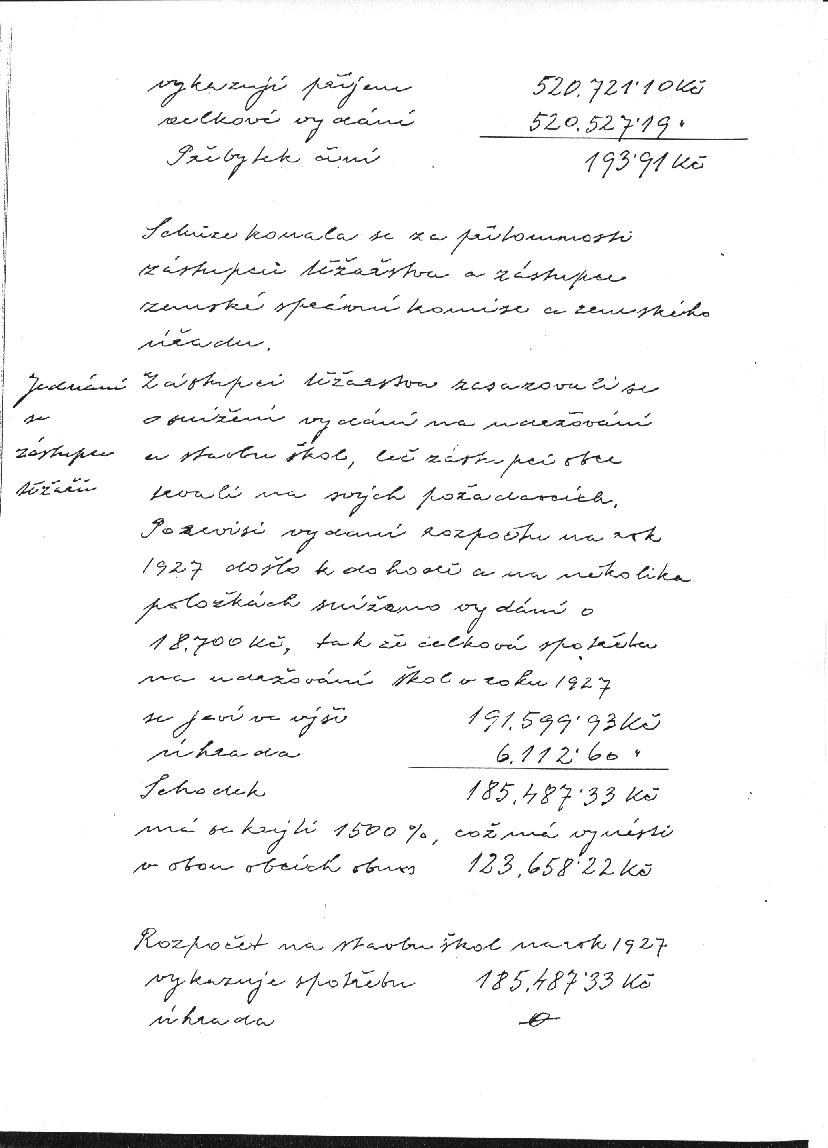 vykazují příjem 520.721·10 Kč
celkové vydání 520.527·19 "
Přebytek činí 193·91 Kč
Schůze konala se za přítomnosti
zástupců těžařstva a zástupce
zemské správní komise a zemského
úřadu.
Jednání
se
zástupci
těžařů
Zástupci těžařstva zasazovali se
o snížení vydání na udržování
a stavbu škol, leč zástupci obce
trvali na svých požadavcích.
Po revisi vydání rozpočtu na rok
1927 došlo k dohodě a na několika
položkách sníženo vydání o
18.700 Kč, tak že celková spotřeba
na udržování škol v roku 1927
se jeví ve výši 191.599·93 Kč
úhrada 6.112·60 "
Schodek 185.487·33 Kč
má se krýti 1500 %, což má vynésti
v obou obcích obnos 123.658·22 Kč
Rozpočet na stavbu škol na rok 1927
vykazuje spotřebu 185.487·33 Kč
úhrada 0